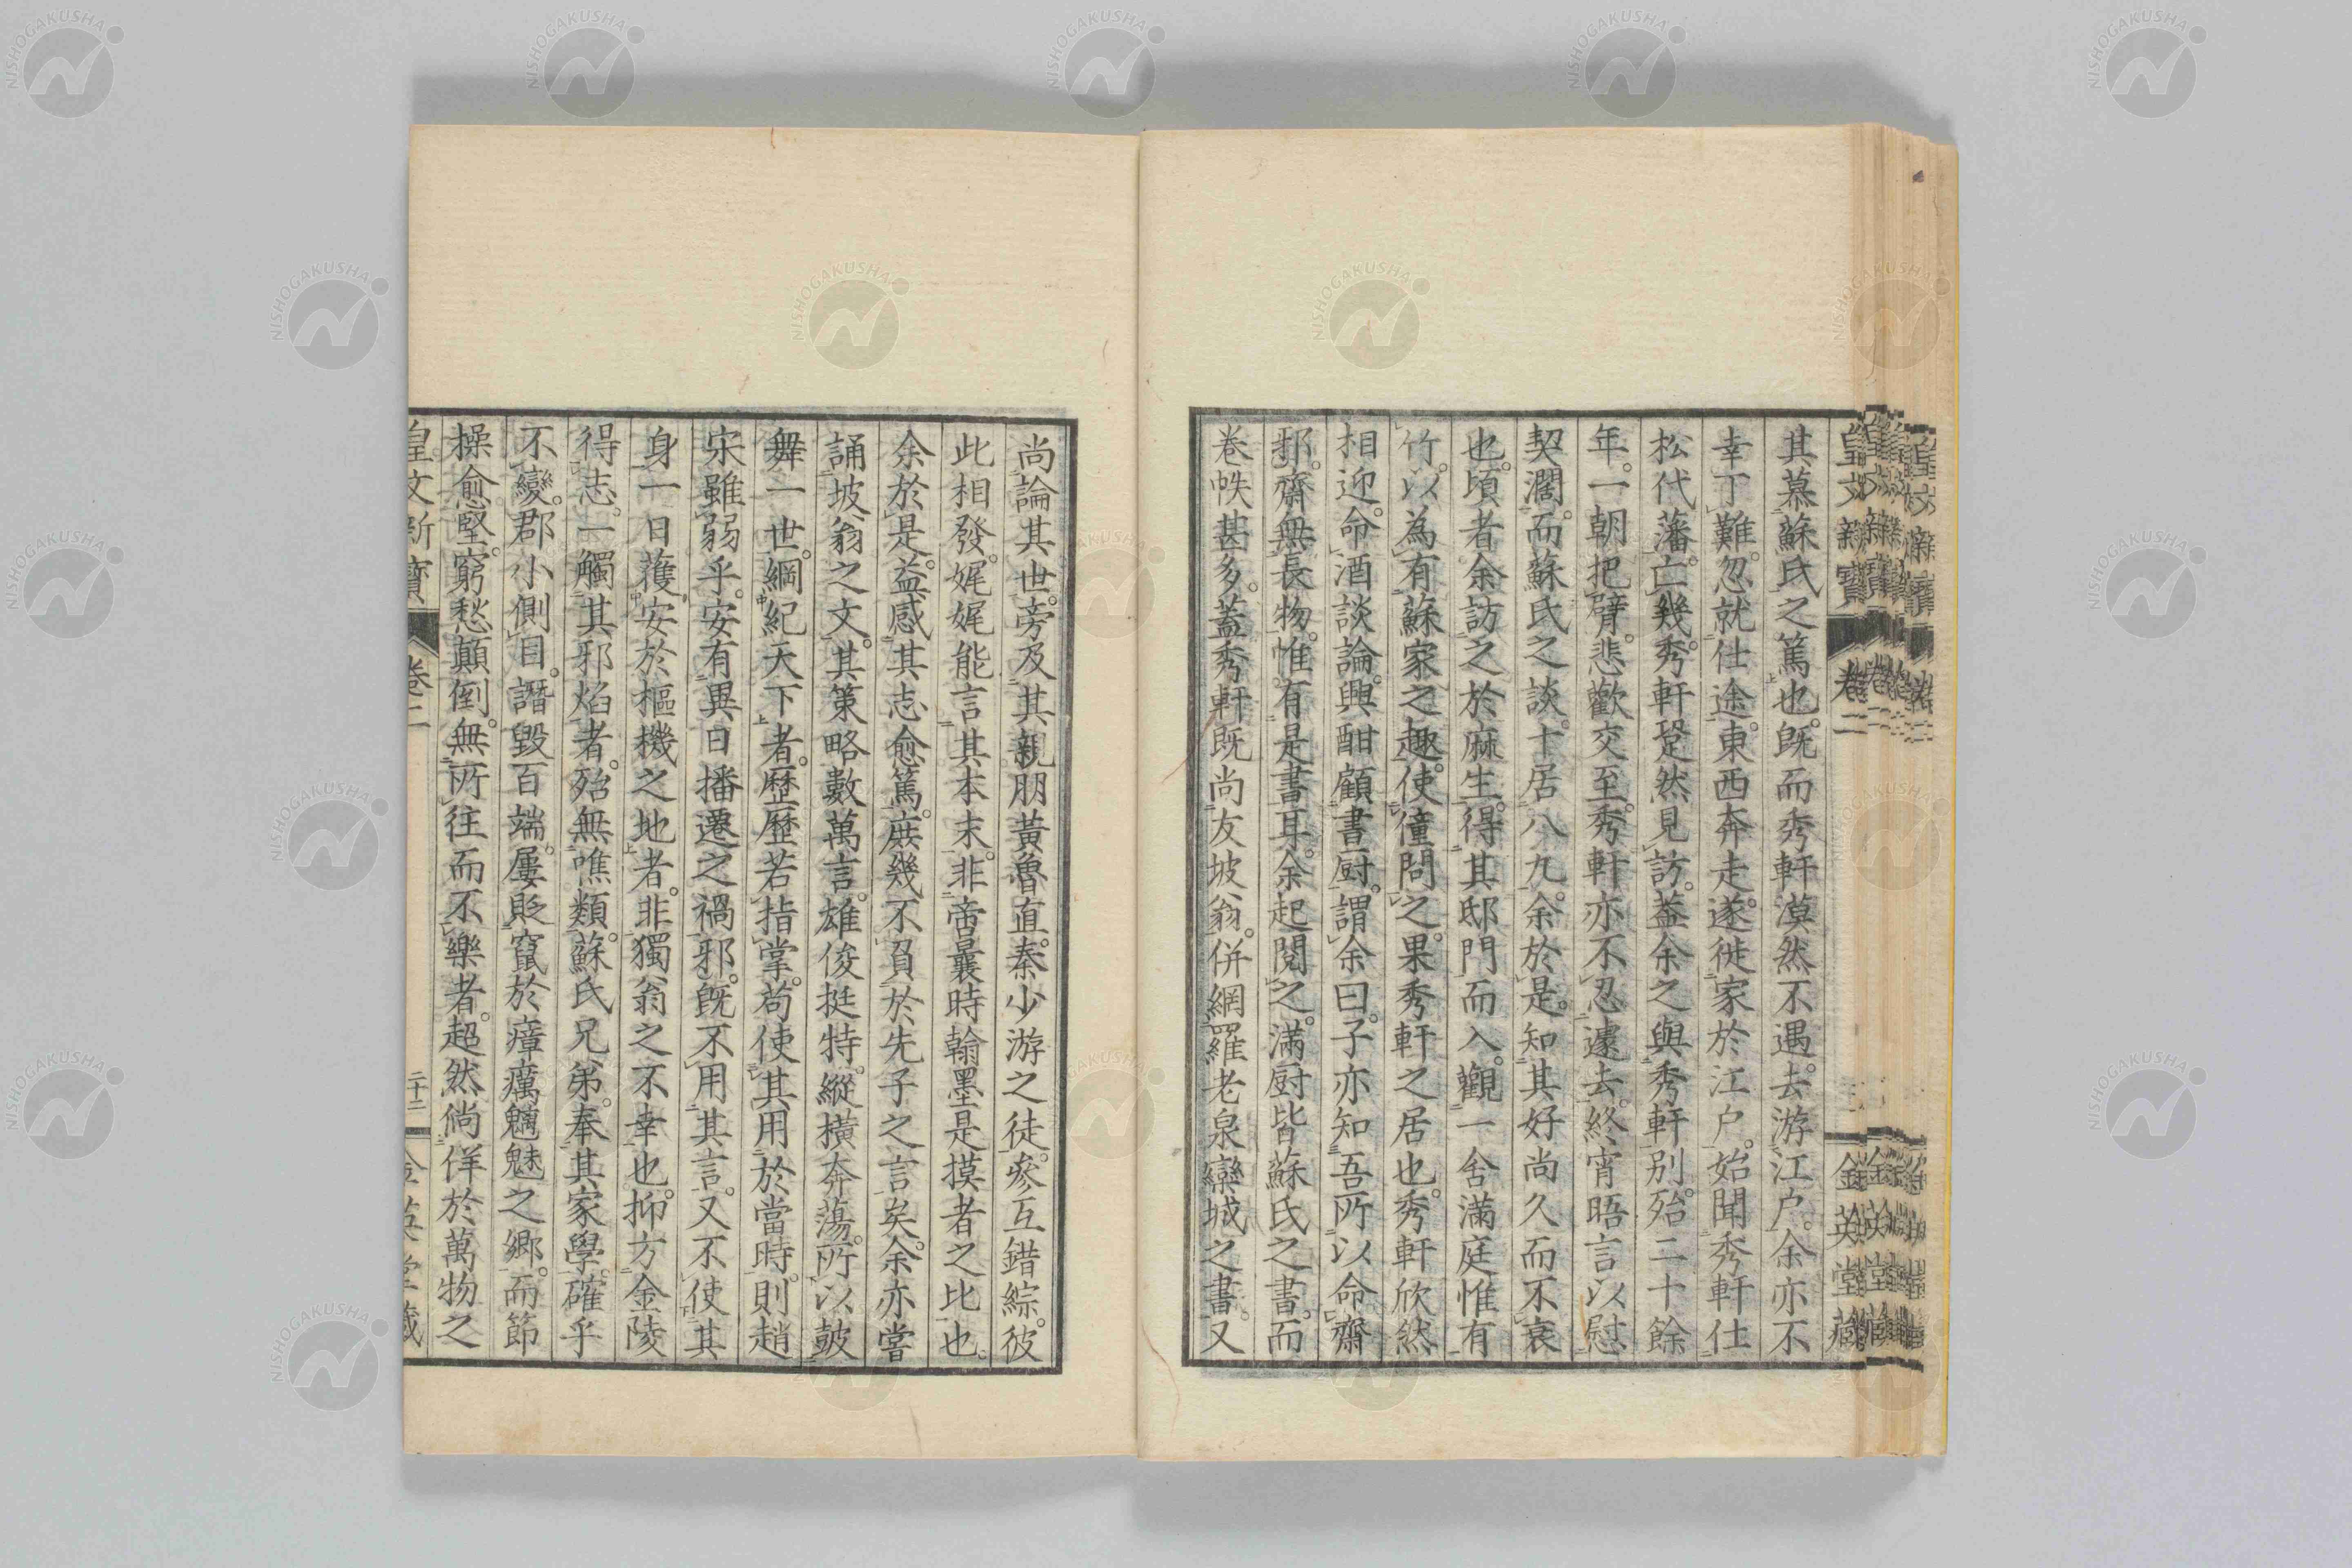 其慕蘇氏之篤也。既而秀軒漠然不遇。去游江户。余亦不
幸丁難。忽就仕途。東西奔走。遂徙家於江户。始聞秀軒仕
松代藩。亡幾。秀軒跫然見訪。蓋余之與秀軒別。殆二十餘
年。一朝把臂。悲歡交至。秀軒亦不忍遽去。終宵晤言以慰
契濶。而蘇氏之談。十居八九。余於是。知其好尚久而不衰
也。頃者余訪之於麻生。得其邸門而入。觀一舍滿庭惟有
竹。以為有蘇家之趣。使僮問之。果秀軒之居也。秀軒欣然
相迎。命酒談論。興酣顧書厨。謂余曰。子亦知吾所以命齋
邪。齋無長物。惟有是書耳。余起閱之。滿厨皆蘇氏之書。而
卷帙甚多。蓋秀軒既尚友坡翁。併網羅老泉欒城之書。又
尚論其世。旁及其親朋黃魯直。秦少游之徒。參互錯綜。彼
此相發。娓娓能言其本末。非啻曩時翰墨是摸者之比也。
余於是。益感其志愈篤。庶幾不負於先子之言矣。余亦嘗
誦坡翁之文。其策略數萬言。雄俊挺特。縱橫奔蕩。所以鼓
舞一世。綱紀天下者。歷歷若指掌。苟使其用於當時。則趙
宋雖弱乎。安有異日播遷之禍邪。既不用其言。又不使其
身一日獲安於樞機之地者。非獨翁之不幸也。抑方金陵
得志。一觸其邪焰者。殆無噍類。蘇氏兄弟。奉其家學。確乎
不變。郡小側目。譖毀百端。屢貶竄於瘴癘魑魅之鄉。而節
操愈堅。窮愁顛倒。無所往而不樂者。超然倘佯於萬物之
皇文新寶
卷二
二十二
金英堂藏